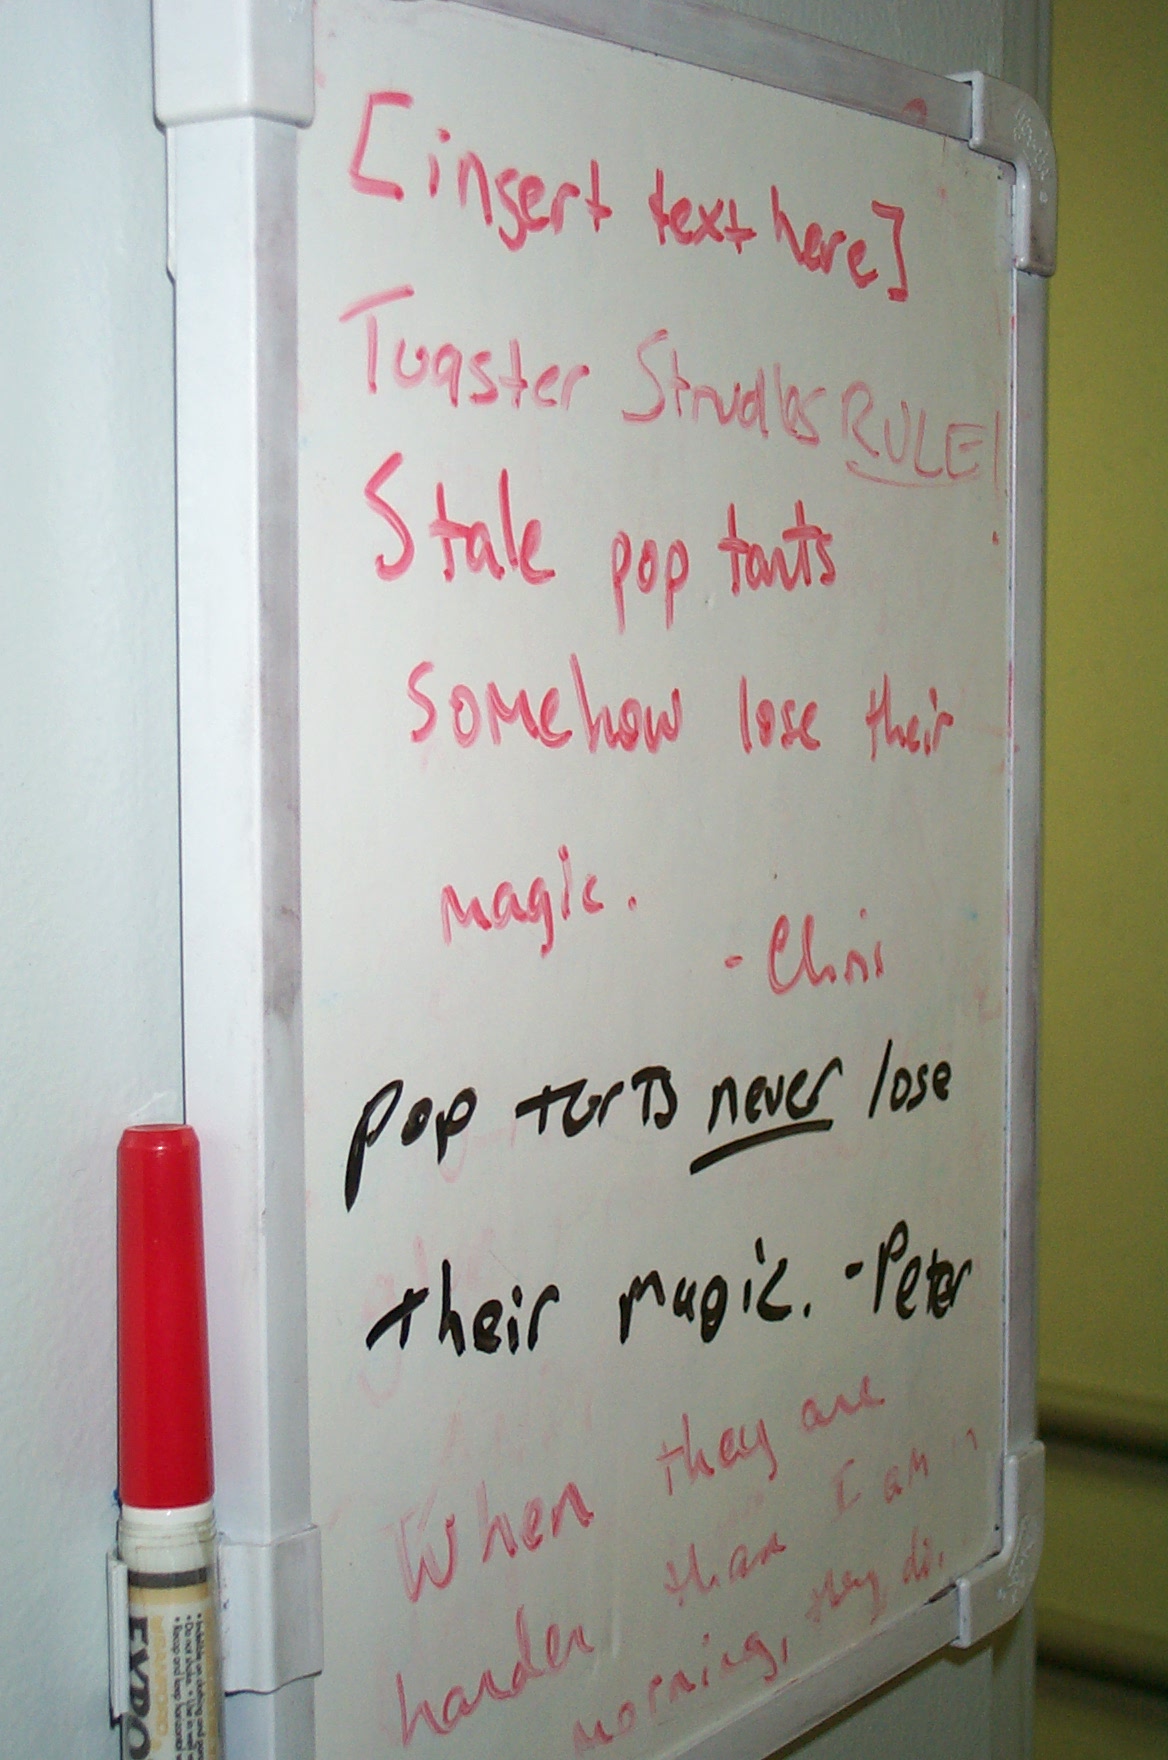 [insert text here]
Toaster Strudles RULE!
Stale pop tarts
somehow lose their
magic.
- Chris
pop tarts never lose
their magic. - Peter
When they are
harder than I am in
morning, they do.
EXPO